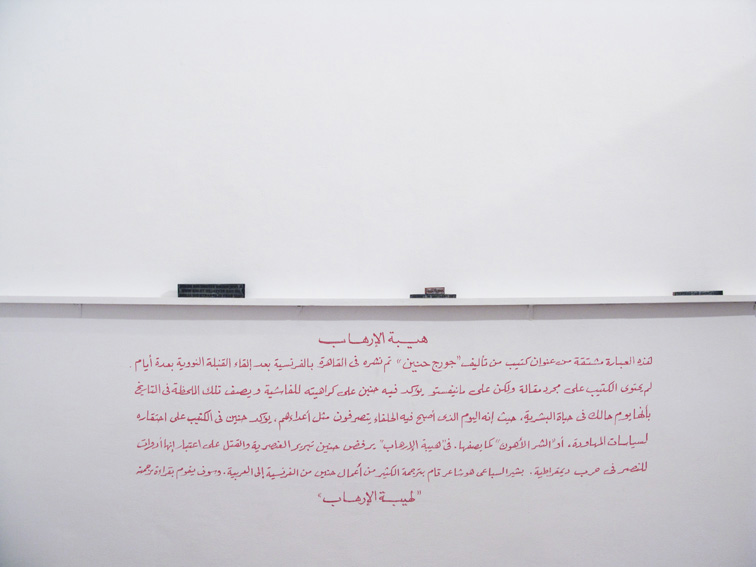 هيبة الإرهاب
هذه العبارة مشتقة من عنوان كتيب من تأليف "جورج حنين" تم نشره فى القاهرة بالفرنسية بعد إلقاء القنبلة النووية بعدة أيام.
لم يحتوى الكتيب على مجرد مقالة ولكن على مانيفستو يؤكد فيه حنين على كراهيته للفاشية ويصف تلك اللحظة فى التاريخ
بأنها يوم حالك فى حياة البشرية، حيث إنه اليوم الذى أصبح فيه الحلفاء يتصرفون مثل أعدائهم. يؤكد حنين فى الكتيب على احتقاره
لسياسات المهاودة، أو "الشر الأهون" كما يصفها. فى "هيبة الإرهاب" يرفض حنين تبرير العنصرية والقتل على اعتبار إنها أدوات
للنصر فى حرب ديمقراطية. بشير السباعى هو شاعر قام بترجمة الكثير من أعمال حنين من الفرنسية إلى العربية. وسوف يقوم بقراءة ترجمة
"لهيبة الإرهاب"